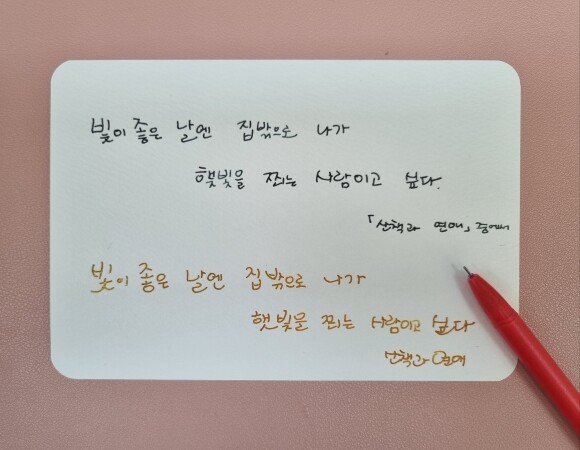 빛이 좋은 날엔 집밖으로 나가
햇빛을 쬐는 사람이고 싶다.
「산책과 연애」 중에서
빛이 좋은 날엔 집밖으로 나가
햇빛을 쬐는 사람이고 싶다
산책과 연애